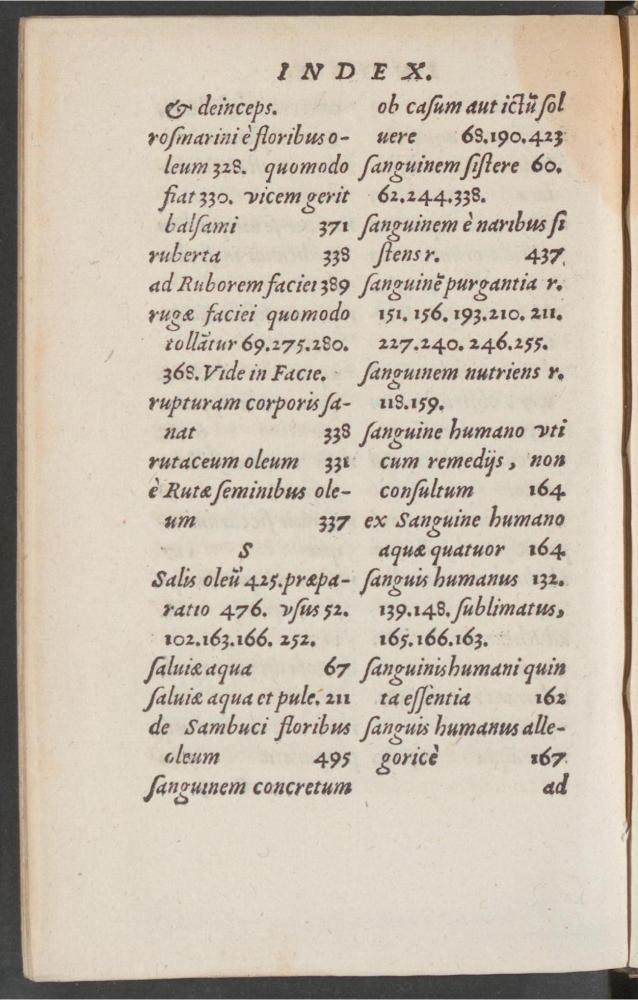 INDEX.
& deinceps.
rosmarini è floribus o-
leum 328. quomodo
fiat 330. vicem gerit
balsami 371
ruberta 338
ad Ruborem faciei 389
rugæ faciei quomodo
tollãtur 69.275.280.
368. Vide in Facie.
rupturam corporis sa-
nat 338
rutaceum oleum 331
è Rutæ seminibus ole-
um 337
S
Salis oleũ 425. præpa-
ratio 476. vsus 52.
102.163.166. 252.
saluiæ aqua 67
saluiæ aqua et pulu. 211
de Sambuci floribus
oleum 495
sanguinem concretum
ob casum aut ictũ sol
uere 68.190.423
sanguinem sistere 60.
62.244.338.
sanguinem è naribus si
stens r. 437
sanguinẽ purgantia r.
151. 156. 193.210. 211.
227.240. 246.255.
sanguinem nutriens r.
118.159.
sanguine humano vti
cum remedijs, non
consultum 164
ex Sanguine humano
aquæ quatuor 164
sanguis humanus 132.
139.148. sublimatus,
165.166.163.
sanguinis humani quin
ta essentia 162
sanguis humanus alle-
goricè 167
ad